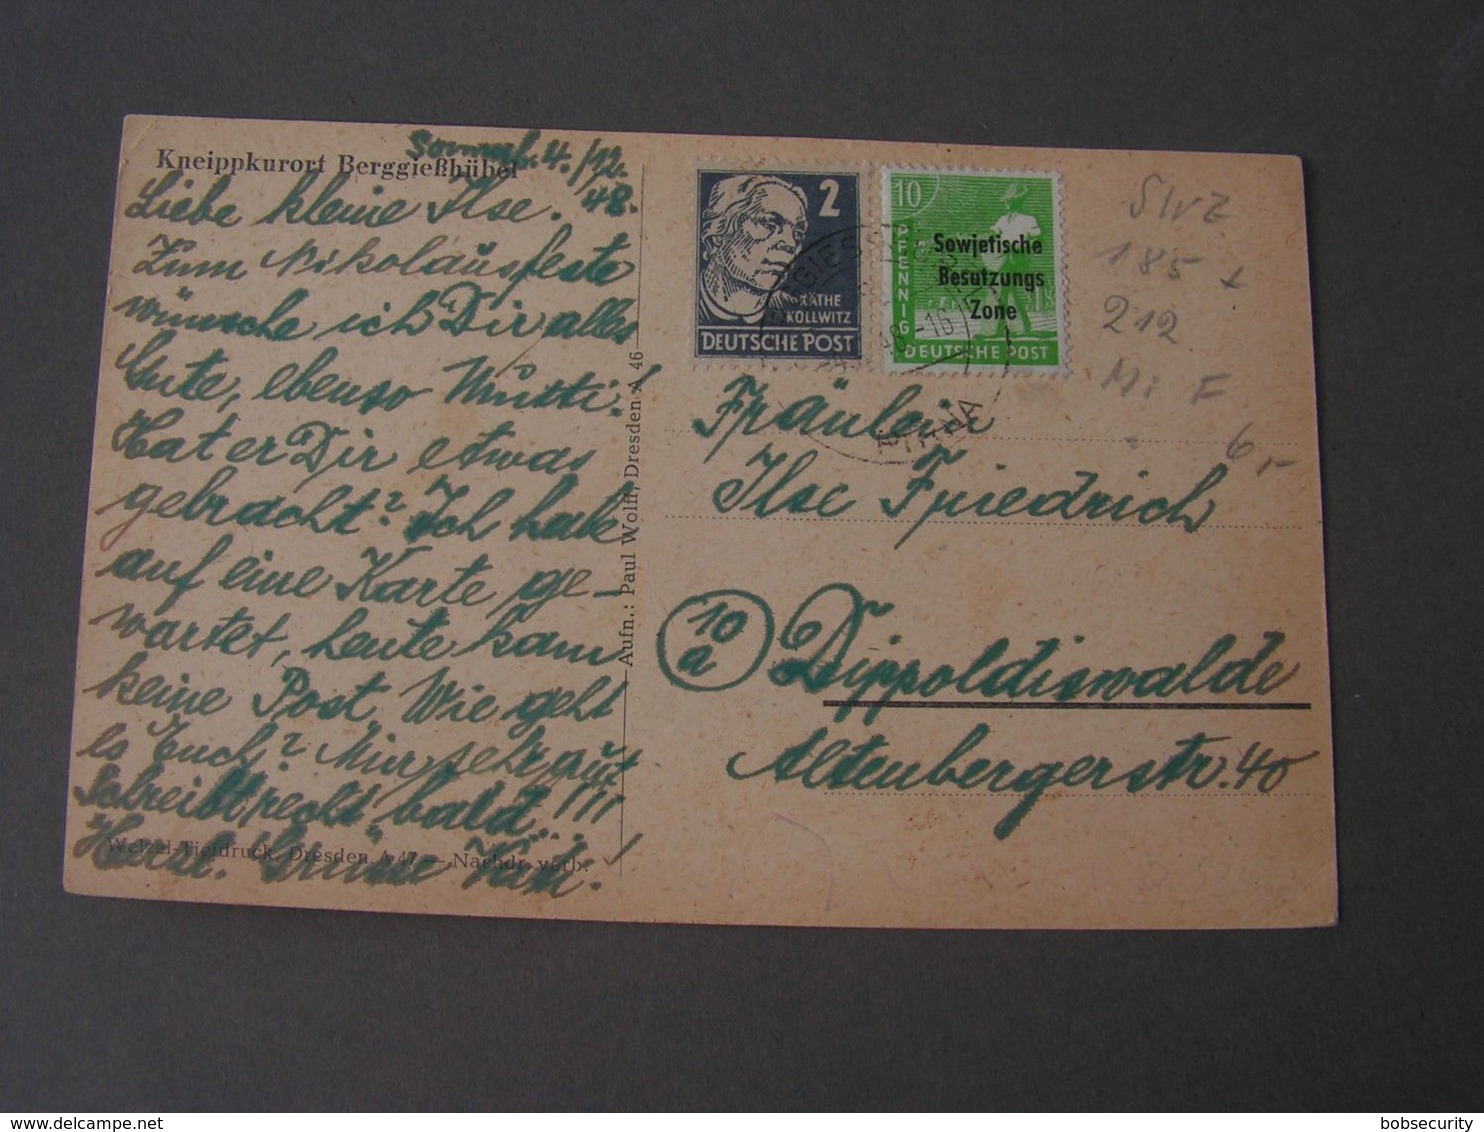 Kneippkurort Berggießhübel
Sonnab. 4./12.
48.
Liebe kleine Ilse.
Zum Nikolausfeste
wünsche ich Dir alles
Gute, ebenso Mutti!
Hat er Dir etwas
gebracht? Ich habe
auf eine Karte ge-
wartet, heute kam
keine Post. Wie geht
es Euch? Mir sehr gut
Schreibt recht bald...!!!
Herzl. Grüsse
Welzel-Tiefdruck, Dresden A 47 — Nachdr. verb.
Aufn.: Paul Wolff, Dresden A 46
2
KÄTHE
KOLLWITZ
DEUTSCHE POST
10
PFENNIG
Sowjetische
Besatzungs
Zone
DEUTSCHE POST
48.-16
PIRNA
185 +
212
Mi F
6,-
Fräulein
Ilse Friedrich
10
a
Dippoldiswalde
Altenbergerstr. 40
bobsecurity